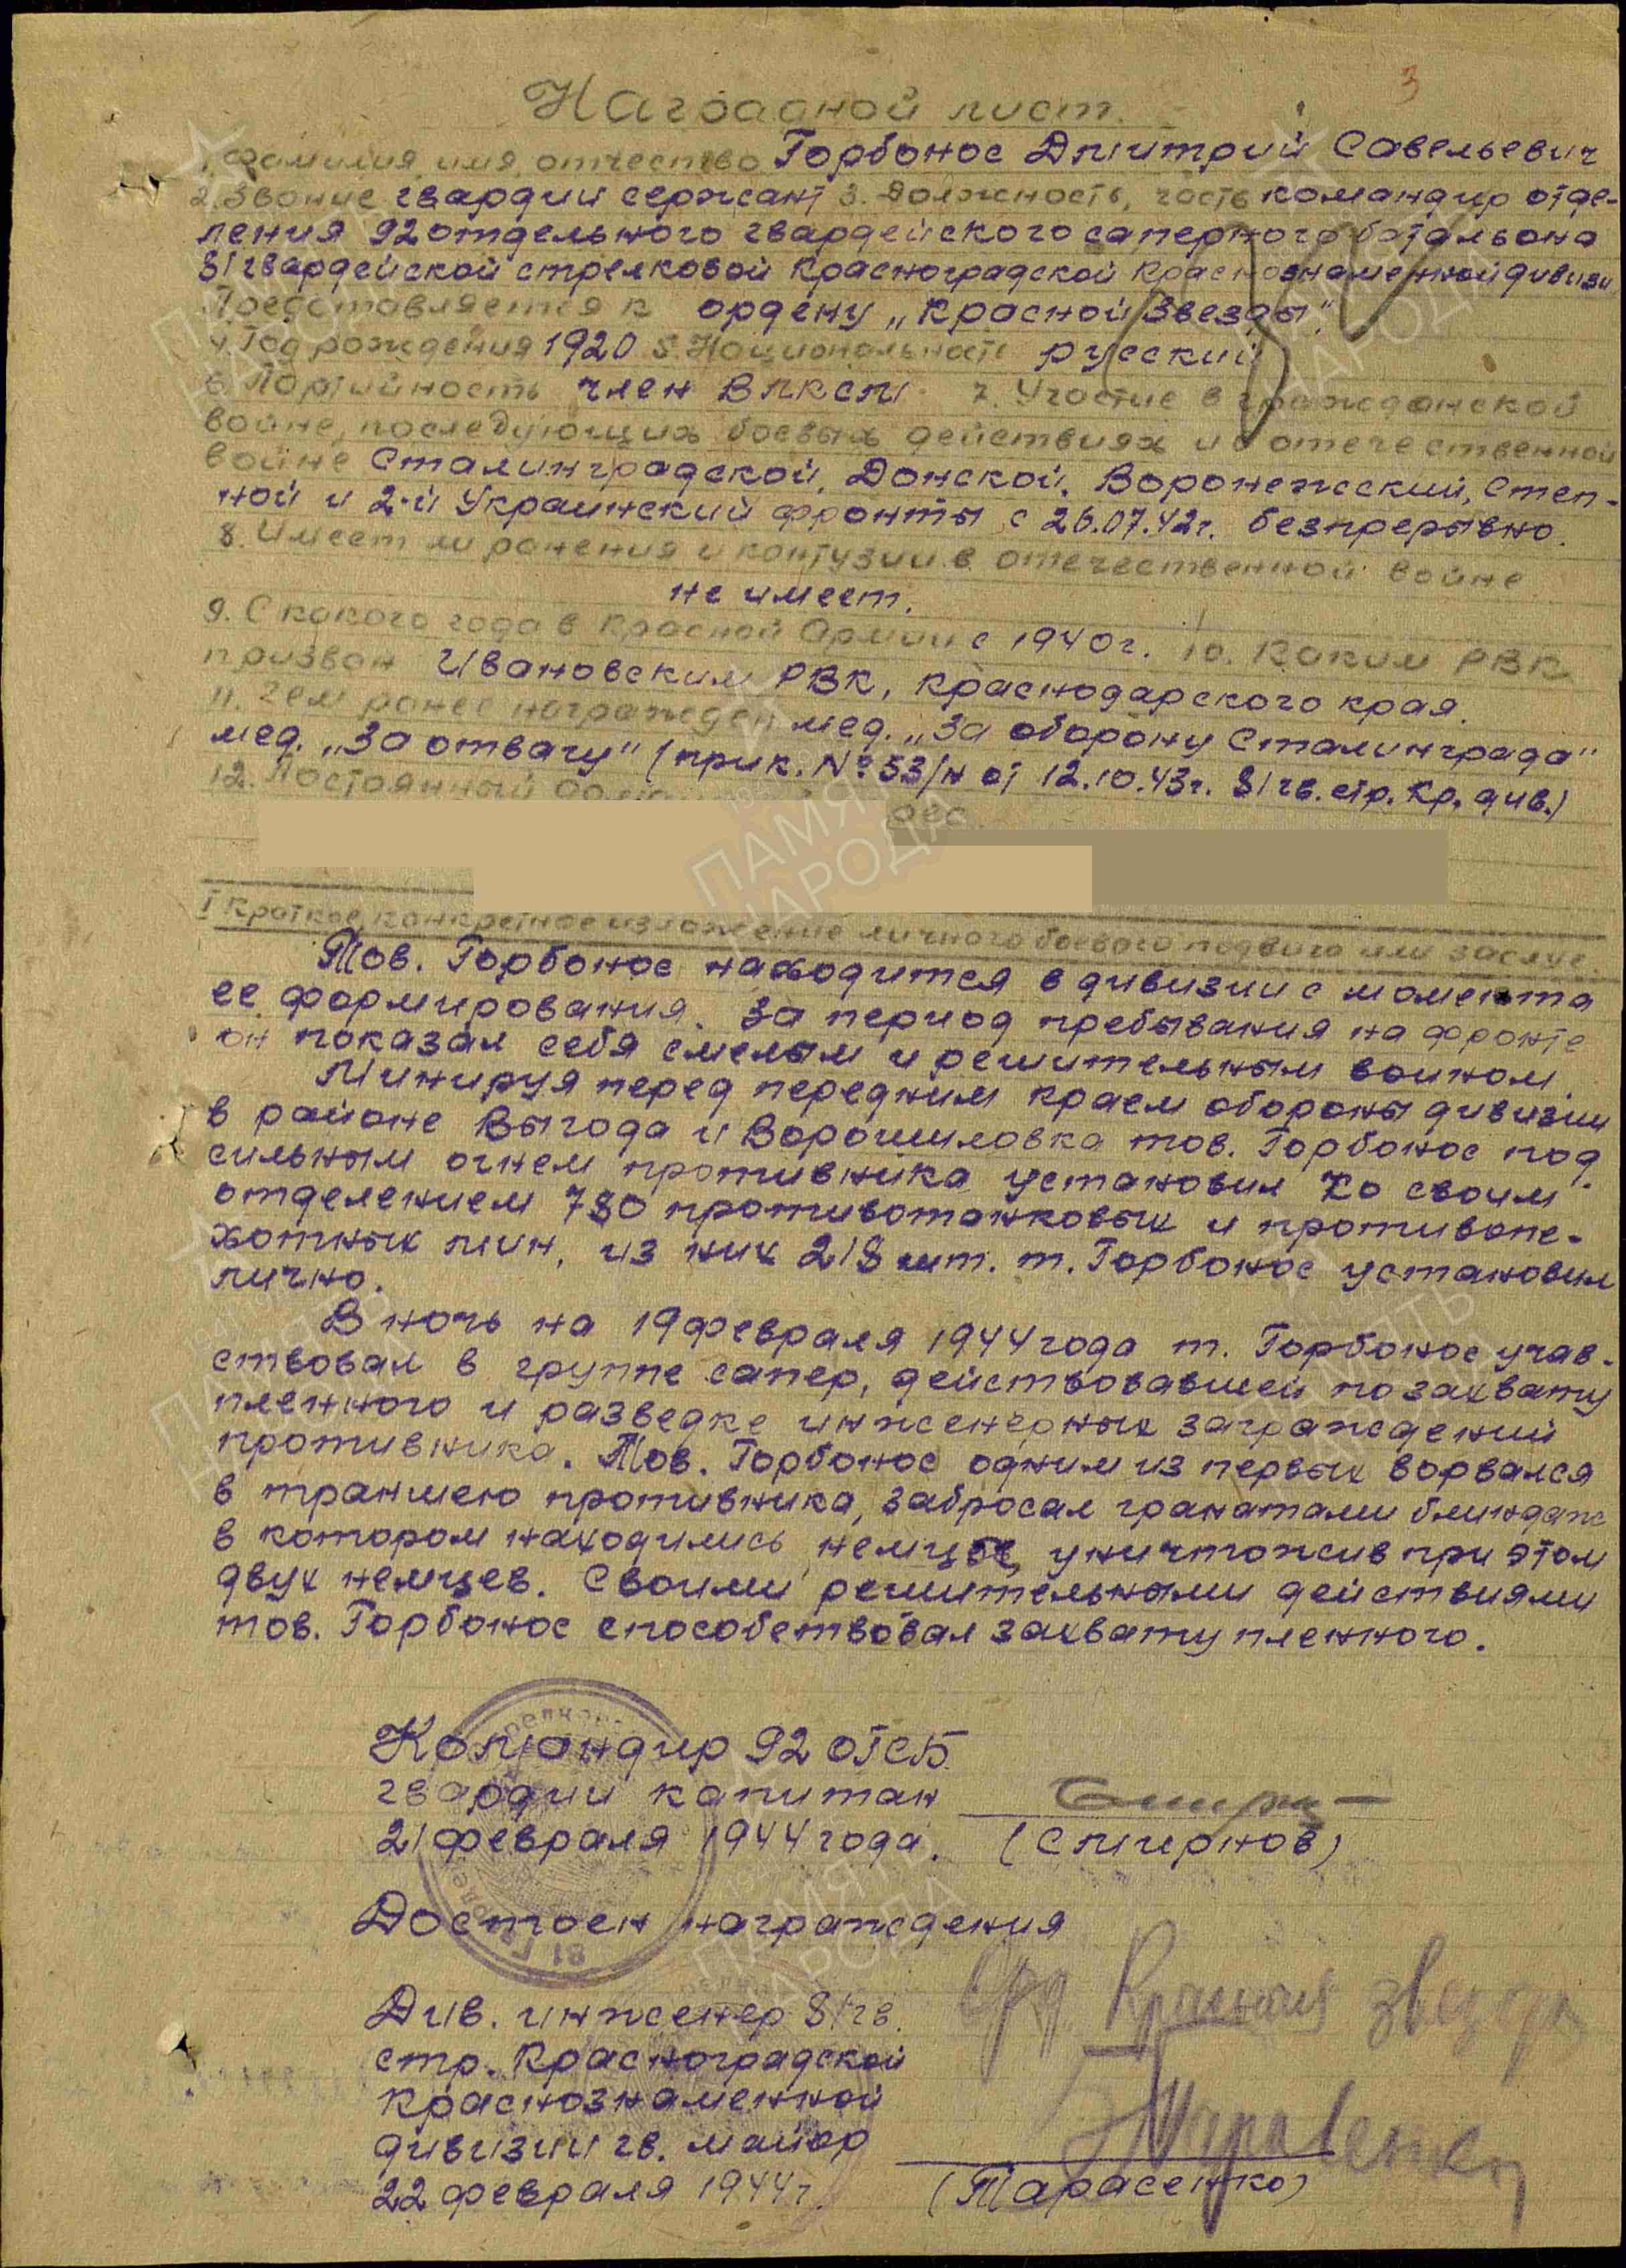 3
Наградной лист.
1. Фамилия, имя, отчество Горбонос Дмитрий Савельевич
2. Звание гвардии сержант 3. Должность, часть командир отде-
ления 92 отдельного гвардейского саперного батальона
81 гвардейской стрелковой Красноградской Краснознаменной дивизи
Представляется к ордену „Красной Звезды".
4. Год рождения 1920 5. Национальность русский
6. Партийность член ВЛКСМ 7. Участие в гражданской
войне, последующих боевых действиях и в отечественной
войне Сталинградской, Донской, Воронежский, Степ-
ной и 2-й Украинский фронты с 26.07.42г. безпрерывно.
8. Имеет ли ранения и контузии в отечественной войне
не имеет.
9. С какого года в Красной Армии с 1940г. 10. Каким РВК
призван Ивановским РВК, Краснодарского края.
11. Чем ранее награжден мед. „За оборону Сталинграда"
мед. „За отвагу" (прик. №53/н от 12.10.43г. 81 гв. стр. Кр. див.)
12. Постоянный
I Краткое, конкретное изложение личного боевого подвига или заслуг.
Тов. Горбонос находится в дивизии с момента
ее формирования. За период пребывания на фронте
он показал себя смелым и решительным воином.
Минируя перед передним краем обороны дивизии
в районе Выгода и Ворошиловка тов. Горбонос под
сильным огнем противника установил со своим
отделением 780 противотанковых и противопе-
хотных мин, из них 218 шт. т. Горбонос установил
лично.
В ночь на 19 февраля 1944 года т. Горбонос учав-
ствовал в группе сапер, действовавшей по захвату
пленного и разведке инженерных заграждений
противника. Тов. Горбонос одним из первых ворвался
в траншею противника, забросал гранатами блиндаж
в котором находились немцы, уничтожив при этом
двух немцев. Своими решительными действиями
тов. Горбонос способствовал захвату пленного.
Командир 92 ОГСБ
гвардии капитан
21 февраля 1944 года. (Смирнов)
Достоен награждения
Див. инженер 81 гв.
стр. Красноградской
Краснознаменной
дивизии гв. майор
22 февраля 1944г. (Тарасенко)
Орд. Красная звезда
Тарасенко
ПАМЯТЬ
НАРОДА